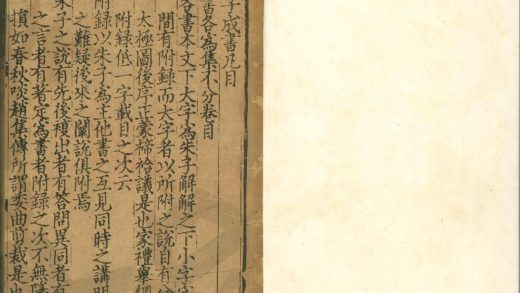 子成書凡目
書各為集不分卷目
各書本文下大字為朱子解解之下小字
間有附録而大字者以所附之說自有
太極圖後序正蒙禘祫議是也家禮
附録低一字載目之次云
附録以朱子為主他書之互見同時之講明
之難疑後來之闡說俱附焉
朱子之說有先後複出者有答問異同者有
之言者有著定為書者附録之次不無
損如春秋啖趙集傳所謂委曲剪裁是也